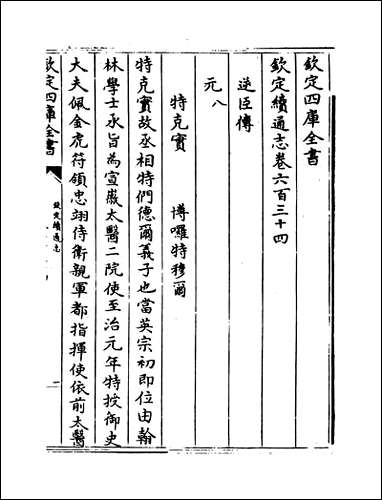 欽定四庫全書
欽定續通志卷六百三十四
逆臣傳
元八
特克實　博囉特穆爾
特克實故丞相特們德爾義子也當英宗初即位由翰
林學士承旨為宣徽太醫二院使至治元年特授御史
大夫佩金虎符領忠翊侍衛親軍都指揮使依前太醫
欽定四庫全書
欽定續通志
一